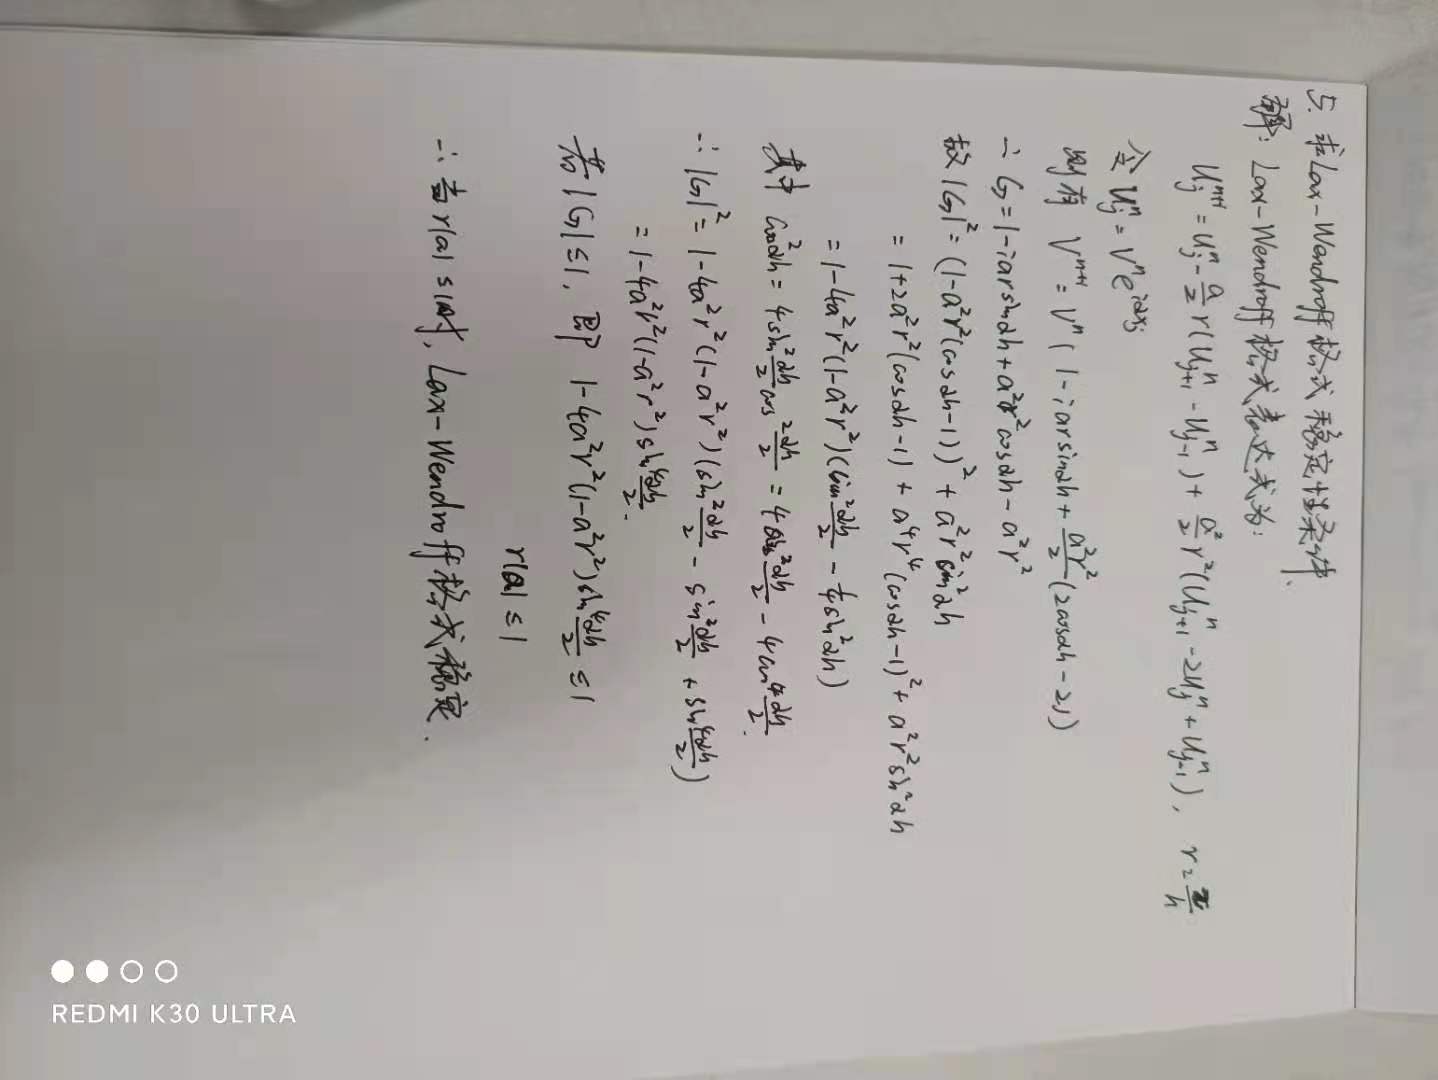 5. 求Lax-Wendroff格式稳定性条件.
解: Lax-Wendroff格式表达式为:
u_j^{n+1} = u_j^n - \frac{a}{2}r(u_{j+1}^n - u_{j-1}^n) + \frac{a^2}{2}r^2(u_{j+1}^n - 2u_j^n + u_{j-1}^n), r = \frac{τ}{h}
令 u_j^n = v^n e^{iαx_j}
则有 v^{n+1} = v^n(1 - iar sinαh + \frac{a^2r^2}{2}(2cosαh - 2))
∴ G = 1 - iar sinαh + a^2r^2 cosαh - a^2r^2
故 |G|^2 = (1 - a^2r^2(cosαh - 1))^2 + a^2r^2 sin^2αh
= 1 + 2a^2r^2(cosαh - 1) + a^4r^4(cosαh - 1)^2 + a^2r^2 sin^2αh
= 1 - 4a^2r^2(1 - a^2r^2)(sin^2\frac{αh}{2} - \frac{1}{4}sin^2αh)
其中 cos^2αh = 4sin^2\frac{αh}{2}cos^2\frac{αh}{2} = 4sin^2\frac{αh}{2} - 4sin^4\frac{αh}{2}.
∴ |G|^2 = 1 - 4a^2r^2(1 - a^2r^2)(sin^2\frac{αh}{2} - sin^2\frac{αh}{2} + sin^4\frac{αh}{2})
= 1 - 4a^2r^2(1 - a^2r^2)sin^4\frac{αh}{2}.
若|G| ≤ 1, 即 1 - 4a^2r^2(1 - a^2r^2)sin^4\frac{αh}{2} ≤ 1
r|a| ≤ 1
∴ 当r|a| ≤ 1时, Lax-Wendroff格式稳定.
REDMI K30 ULTRA